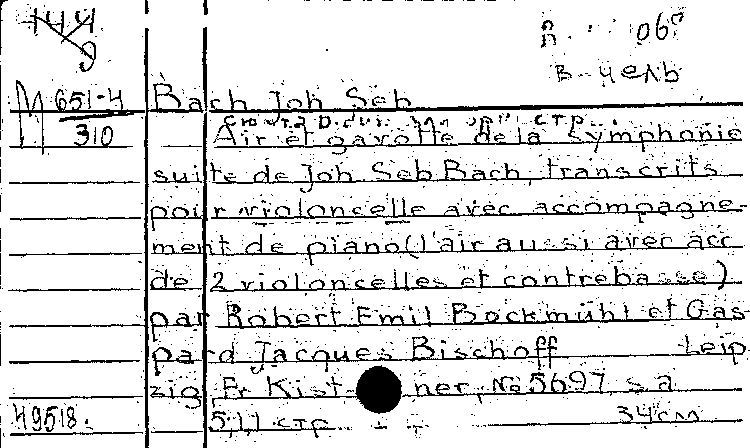 144
9
в-чель
М 651-4
310
Bach Joh Seb
Air et gavotte de la Symphonie
suite de Joh Seb Bach, transcrits
pour violoncelle avec accompagne-
ment de piano (l'air aussi avec acc
de 2 violoncelles et contrebasse)
par Robert Emil Bockmühl et Gas
pard Jacques Bischoff Leip
zig, Fr Kist ner, No 5697 s a
5,11 стр 34 см
49518.